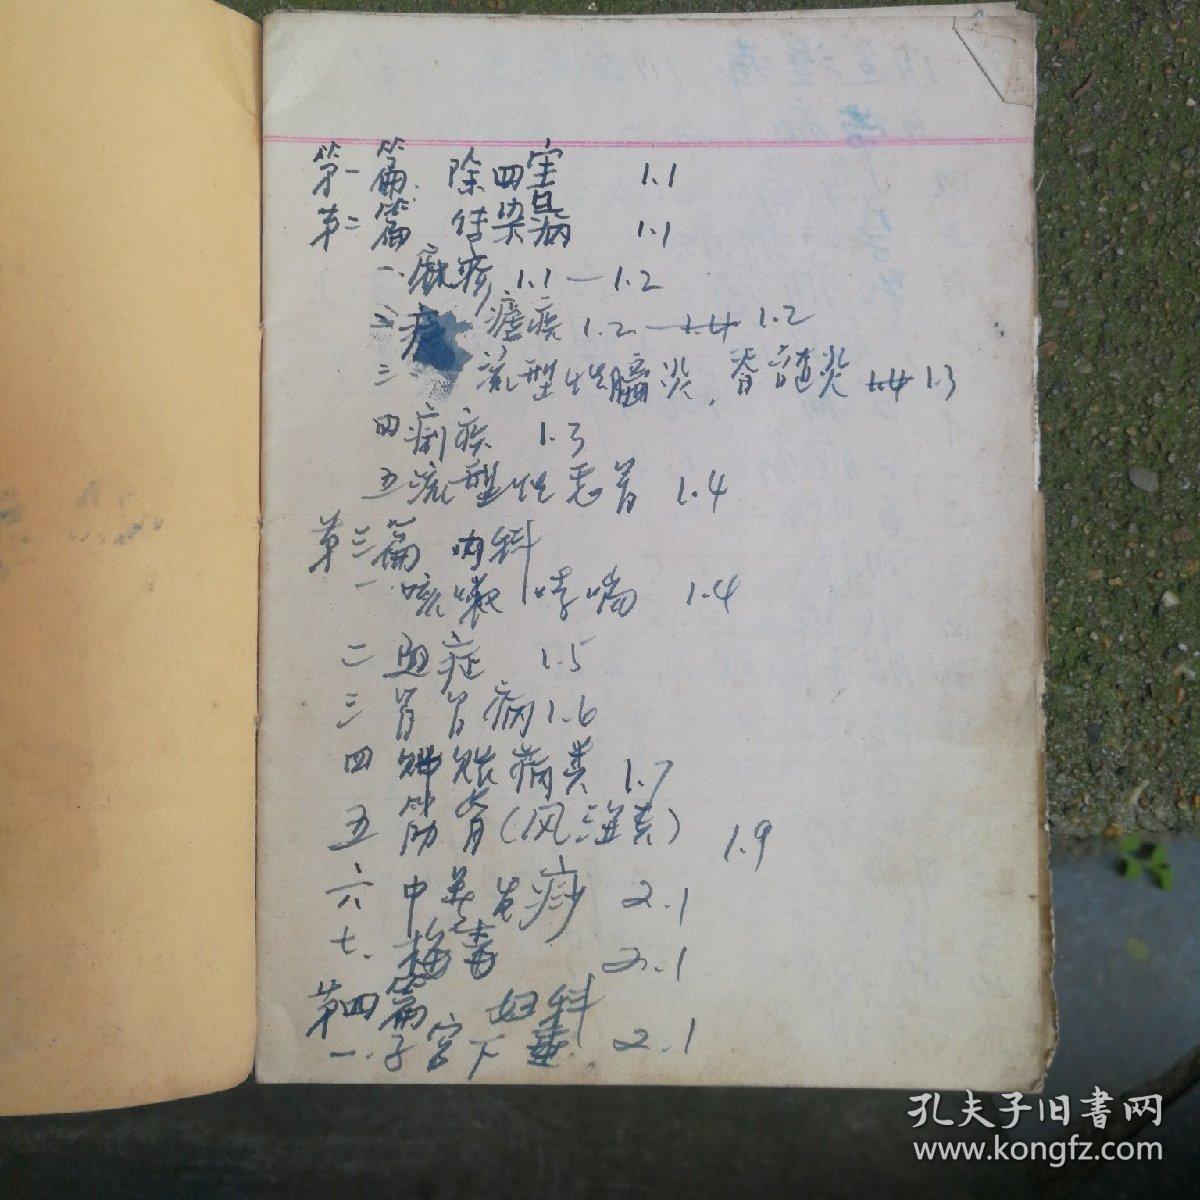 第一篇 除四害 1.1
第二篇 传染病 1.1
一.麻疹 1.1—1.2
二 疟疾 1.2 — 1.2
三 流型性脑炎.脊髓炎 1.3
四 痢疾 1.3
五 流型性感冒 1.4
第三篇 内科
一 咳嗽哮喘 1.4
二 血症 1.5
三 胃病 1.6
四 病类 1.7
五 筋骨(风湿类) 1.9
六 中暑发痧 2.1
七. 梅毒 2.1
第四篇 妇科
一.子宫下垂 2.1
孔夫子旧书网
www.kongfz.com